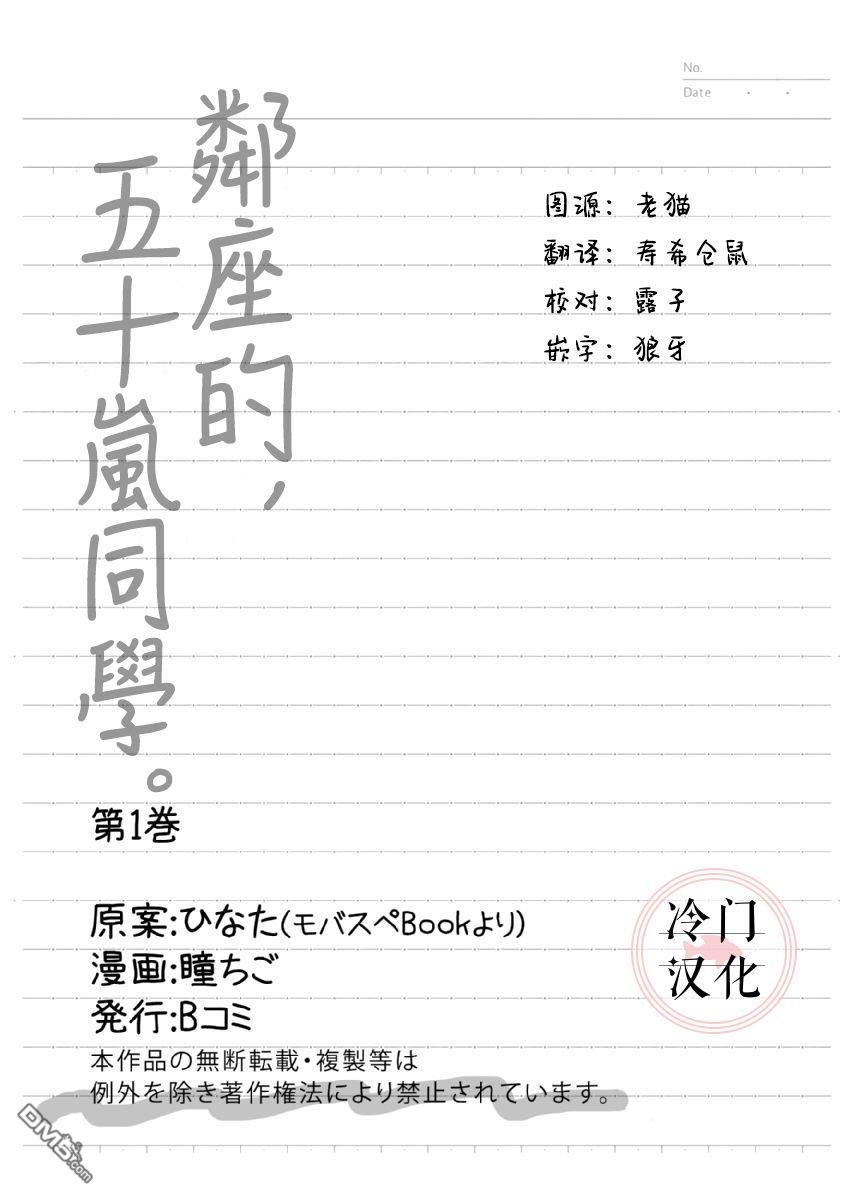 No.
Date
鄰座的，
五十嵐同學。
图源：老猫
翻译：寿希仓鼠
校对：露子
嵌字：狼牙
第1巻
原案:ひなた(モバスペBookより)
漫画:瞳ちご
発行:Bコミ
本作品の無断転載・複製等は
例外を除き著作権法により禁止されています。
冷门
汉化
DM5.com